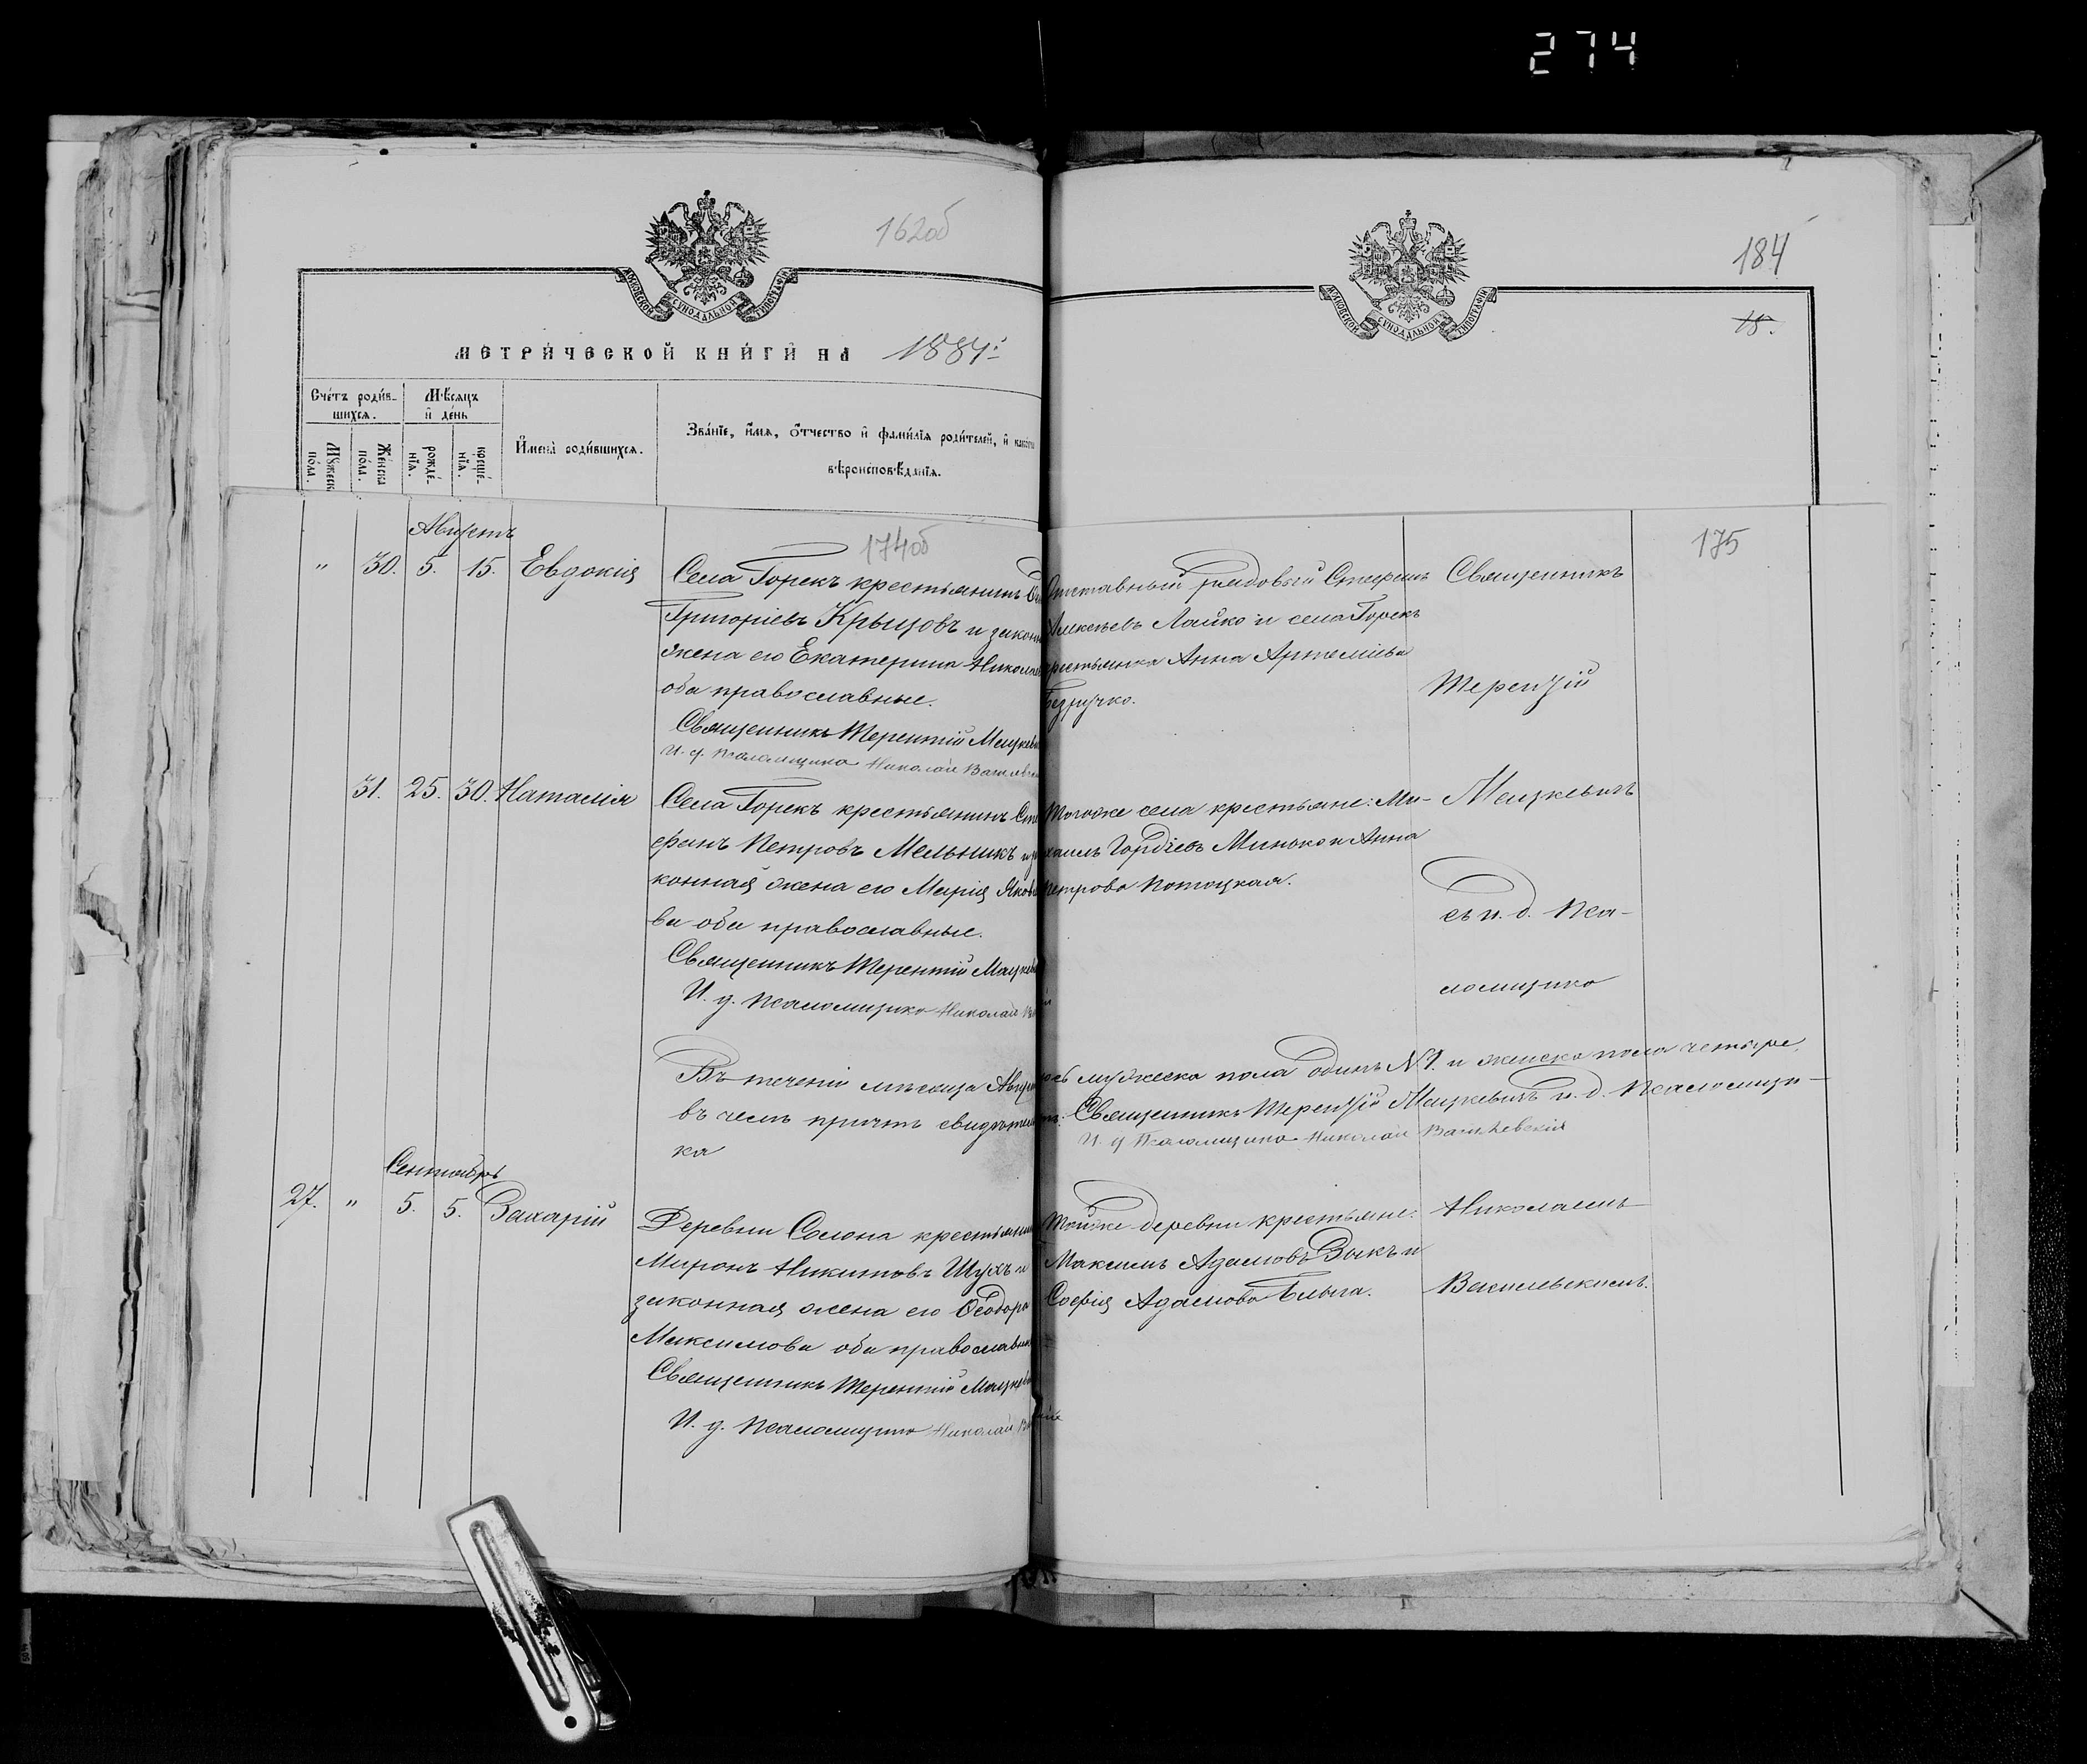 274
162об
184
МОСКОВСКОЙ СѴНОДАЛЬНОЙ ТИПОГРАФІИ
МОСКОВСКОЙ СѴНОДАЛЬНОЙ ТИПОГРАФІИ
18.
МЕТРИЧЕСКОЙ КНИГИ НА 1884
Счетъ родив-
шихся.
Мѣсяцъ
и день
Мꙋжеска
пола.
Женска
пола.
рожде-
нїя.
креще-
нїя.
Имена родившихся.
Званїе, имя, отчество и фамилїя родителей, и
вѣроисповѣданїя.
174об
175
Августъ
" 30. 5. 15. Евдокія
Села Горекъ крестьянинъ
Григоріевъ Крыцовъ и закон
жена его Екатерина Никола
оба православные.
Священникъ Терентій Мацкеви
И. д. Псаломщика Николай
Отставный рядовый Стефанъ
Алексѣевъ Лайко и села Горекъ
крестьянка Анна Артеміева
Безручко.
Священникъ
Терентій
31. 25. 30. Наталія
Села Горекъ крестьянинъ Сте
фанъ Петровъ Мельникъ и за
конная жена его Марія Яковле
ва оба православные.
Священникъ Терентій Мацкеви
И. д. Псаломщика Николай
Тогоже села крестьяне: Ми-
хаилъ Гордіевъ Минько и Анна
Петрова Потоцкая.
Мацкевичъ
съ и. д. Пса-
ломщика
Въ теченіи мѣсяца Августа мужеска пола одинъ №1. и женска пола четыре,
въ чемъ причтъ свидѣтельствуетъ: Священникъ Терентій Мацкевичъ и. д. Псаломщи-
ка
И. д. Псаломщика Николай Василевскій
Сентябрь
27. " 5. 5. Захарій
Деревни Солона крестьянинъ
Миронъ Никитовъ Шухъ и
законная жена его Ѳеодора
Максимова оба православные
Священникъ Терентій Мацкеви
И. д. Псаломщика Николай
Тойже деревни крестьяне:
Максимъ Адамовъ Зыкъ и
Софія Адамова Бѣлая.
Николаемъ
Василевскимъ.